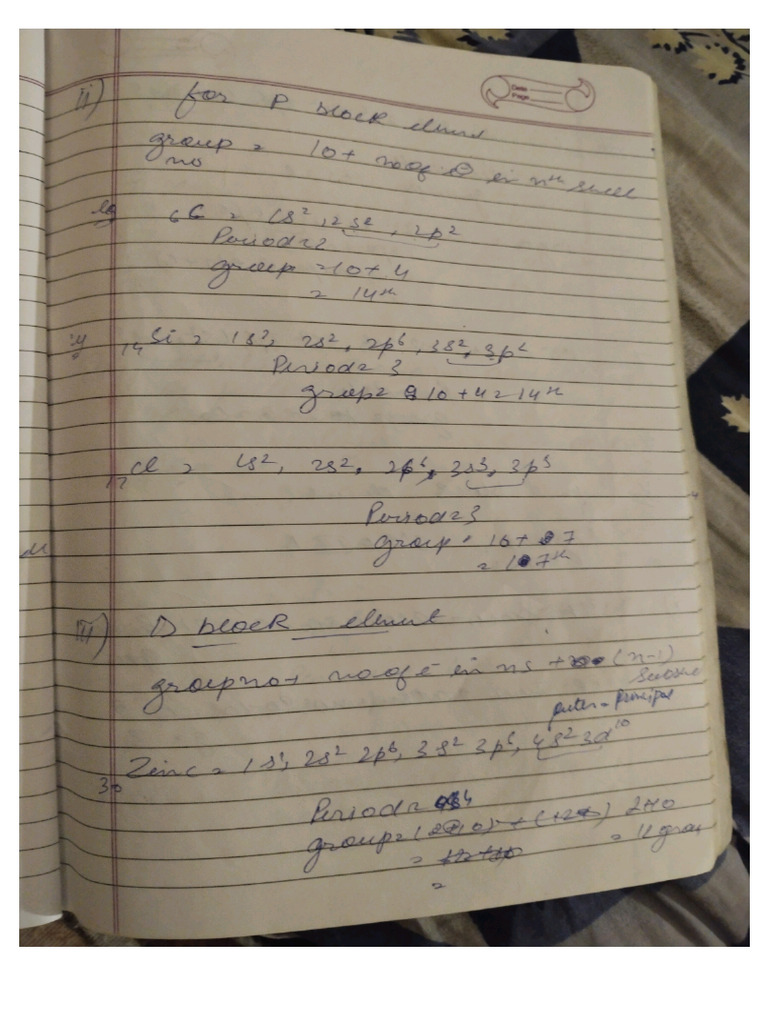 Date
Page
ii) for P block element
group = 10 + no of e in nth shell
no
eg 6C = 1s², 2s², 2p²
Period = 2
group = 10 + 4
= 14th
14Si = 1s², 2s², 2p⁶, 3s², 3p²
Period = 3
group = 10 + 4 = 14th
17Cl = 1s², 2s², 2p⁶, 3s², 3p⁵
Period = 3
group = 10 + 7
= 17th
iii) D block element
group no = no of e in ns + (n-1)
outer - Principal
30 Zinc = 1s², 2s² 2p⁶, 3s² 3p⁶, 4s² 3d¹⁰
Period = 4
group = 2+10
=